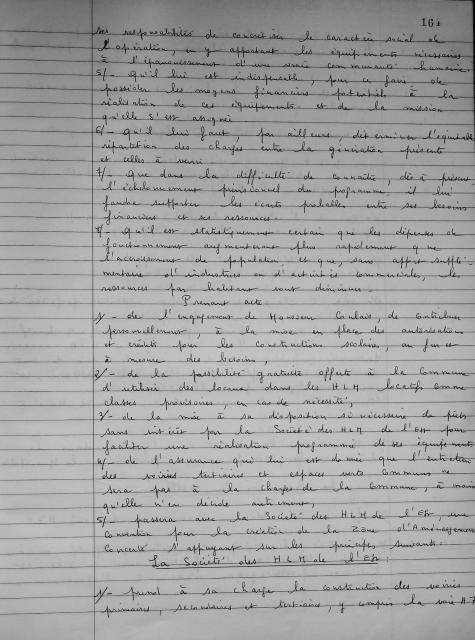 161
ses responsabilités de concrétiser le caractère social de
l'opération, en y apportant les équipements nécessaires
à l'épanouissement d'une vraie communauté humaine
5/- Qu'il lui est indispensable, pour ce faire de
posséder les moyens financiers potentiels à la
réalisation de ces équipements et de la mission
qu'elle s'est assignée
6/- Qu'il lui faut, par ailleurs, déterminer l'équitable
répartition des charges entre la génération présente
et celles à venir
7/- Que dans la difficulté de connaître, dès à présent
l'échelonnement prévisionnel du programme, il lui
faudra supporter les écarts probables entre ses besoins
financiers et ses ressources.
Qu'il est statistiquement certain que les dépenses de
fonctionnement augmenteront plus rapidement que
l'accroissement de population et que, sans apport supplé-
mentaire d'industries ou d'activités commerciales, les
ressources par habitant vont diminuer.
Prenant acte
1/- de l'engagement de Monsieur de contribuer
personnellement, à la mise en place des autorisations
et crédits pour les constructions scolaires, au fur et
à mesure des besoins,
2/- de la possibilité gratuite offerte à la Commune
d'utiliser des locaux dans les HLM locatifs comme
classes provisoires, en cas de nécessité,
3/- de la mise à sa disposition si nécessaire de prêts
sans intérêt par la Société des HLM de l'Est pour
faciliter une réalisation programmée de ses équipements
4/- de l'assurance qui lui est donnée que l'entretien
des voiries tertiaires et espaces verts communs ne
sera pas à la charge de la Commune, à moins
qu'elle n'en décide autrement,
5/- passera avec la Société des HLM de l'Est, une
Convention pour la création de la Zone d'Aménagement
Concerté s'appuyant sur les principes suivants :
La Société des HLM de l'Est :
1/- prend à sa charge la construction des voiries
primaires, secondaires et tertiaires, y compris la voie